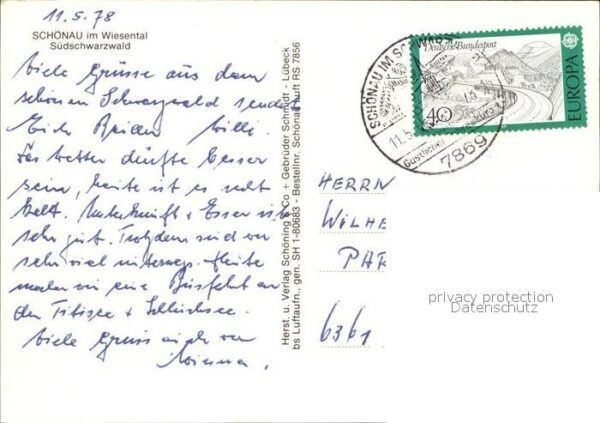 11.5.78
SCHÖNAU im Wiesental
Südschwarzwald
Viele Grüsse aus dem
schönen Schwarzwald sendet
Euch Beiden Willi.
Das Wetter dürfte besser
sein, heute ist es recht
kalt. Unterkunft + Essen ist
sehr gut. Trotzdem sind wir
sehr viel unterwegs. Heute
machen wir eine Busfahrt an
den Titisee + Schluchsee.
Viele Grüsse auch von
Herst. u. Verlag Schöning & Co + Gebrüder Schmidt - Lübeck
bs Luftaufn., gen. SH 1-80683 - Bestellnr. Schönau Luft RS 7856
SCHÖNAU IM SCHWARZW
11.5
7869
Deutsche Bundespost
40
EUROPA
HERRN
WILHE
PAR
6361
privacy protection
Datenschutz